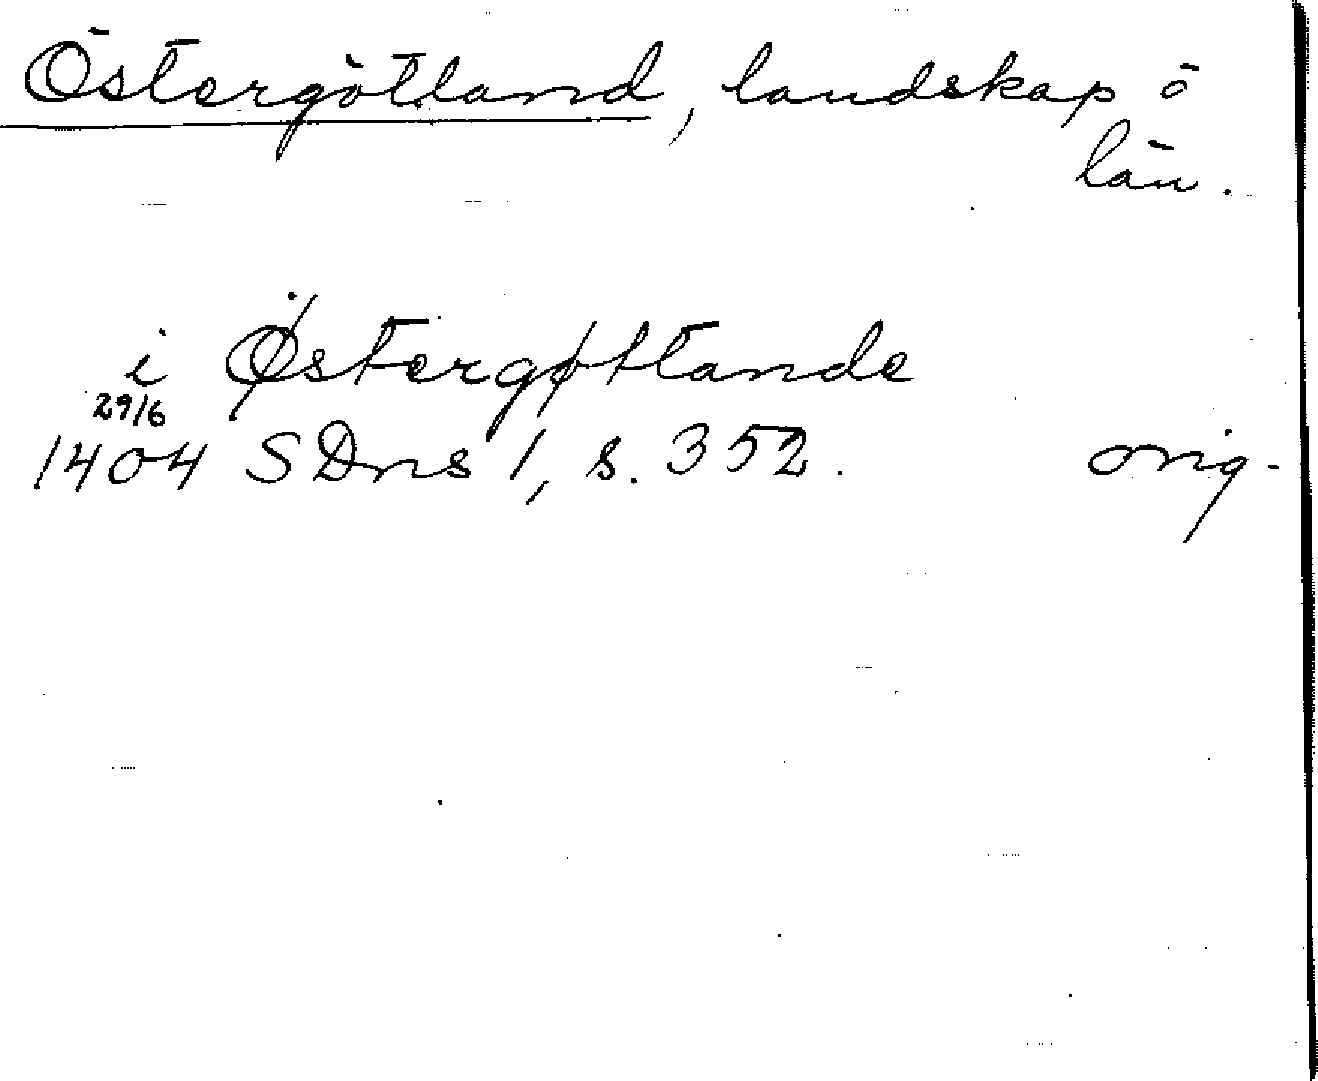 Östergötland, landskap ö
län.
i Østergøtlande
29/6
1404 SDns 1, s. 352. orig.